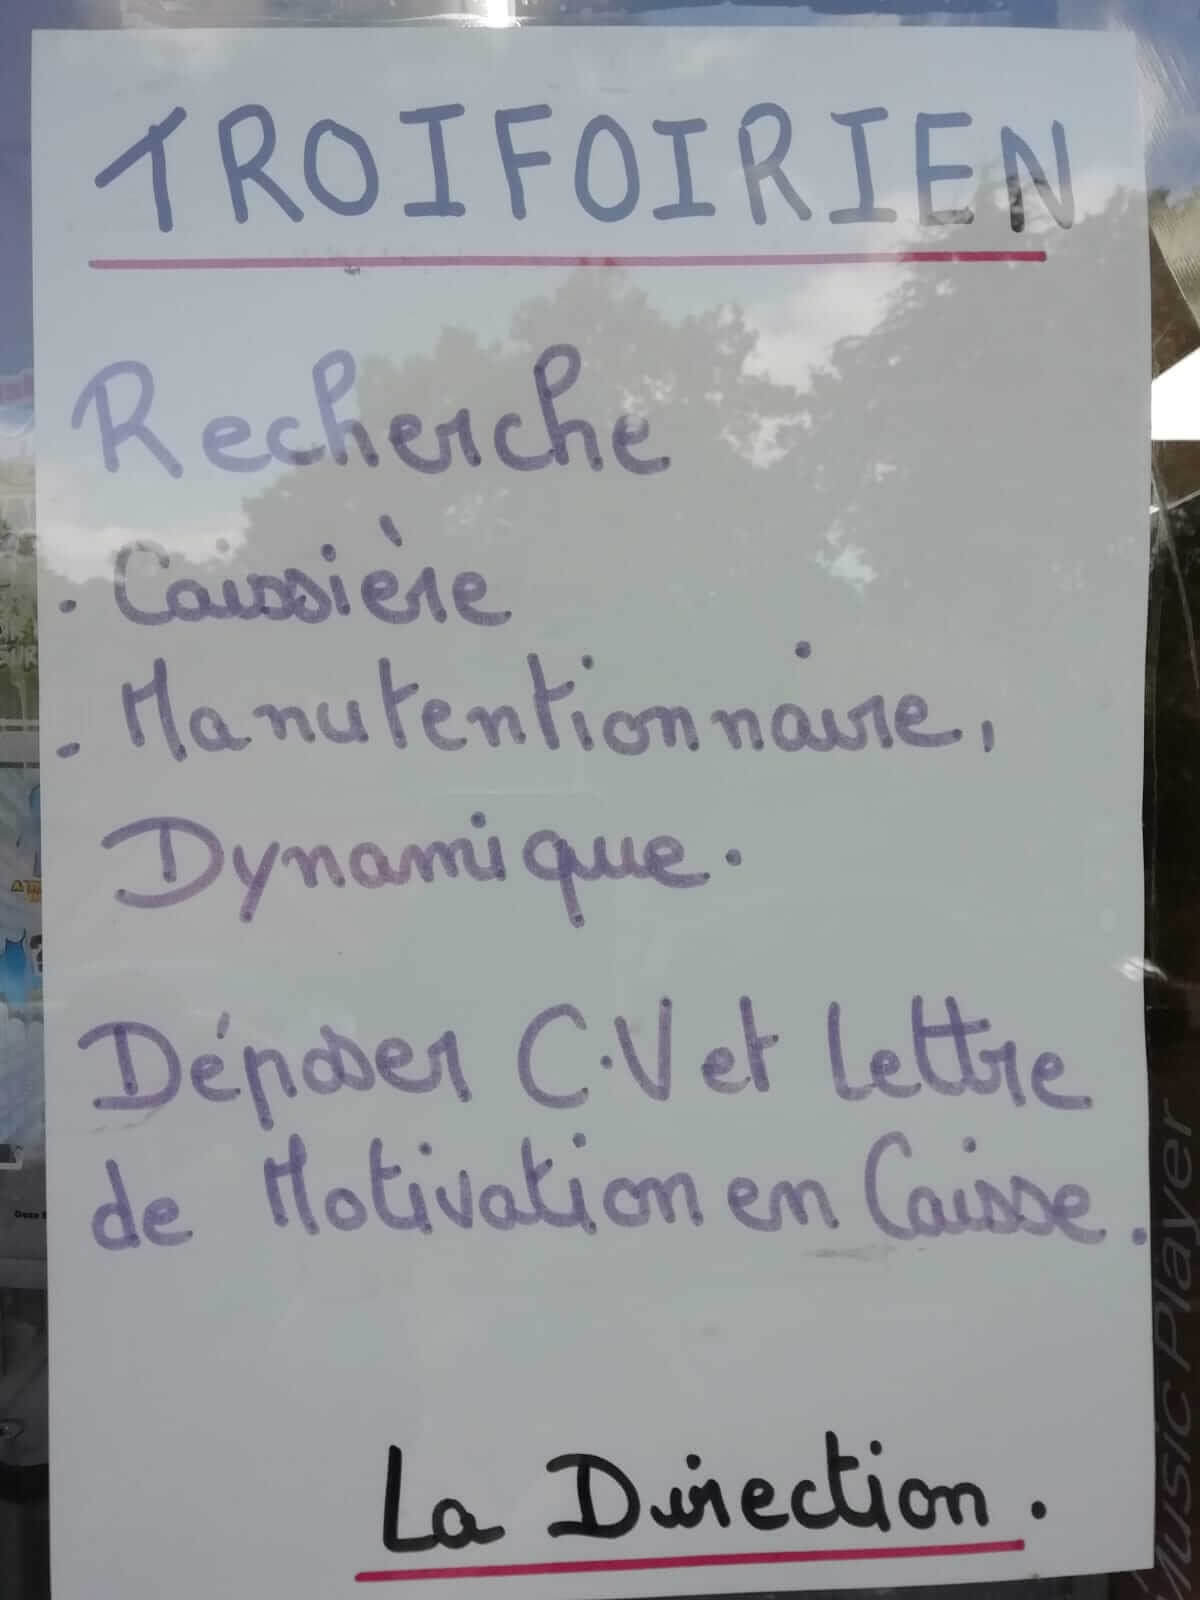 TROIFOIRIEN
Recherche
. Caissière
. Manutentionnaire,
Dynamique.
Déposer C.V et lettre
de Motivation en Caisse.
La Direction.
Music Player